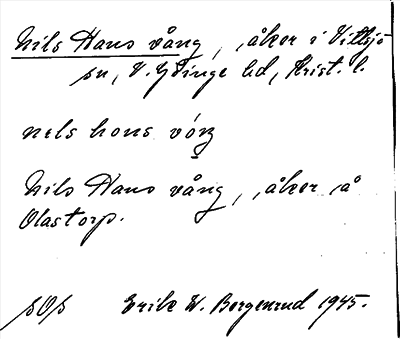 Nils Hans vång, åker i Vittsjö
sn, V. Göinge hd, Krist. l.
nels hons vóŋ
Nils Hans vång, åker å
Olastorp.
sOs Erik W. Borgenrud 1945.